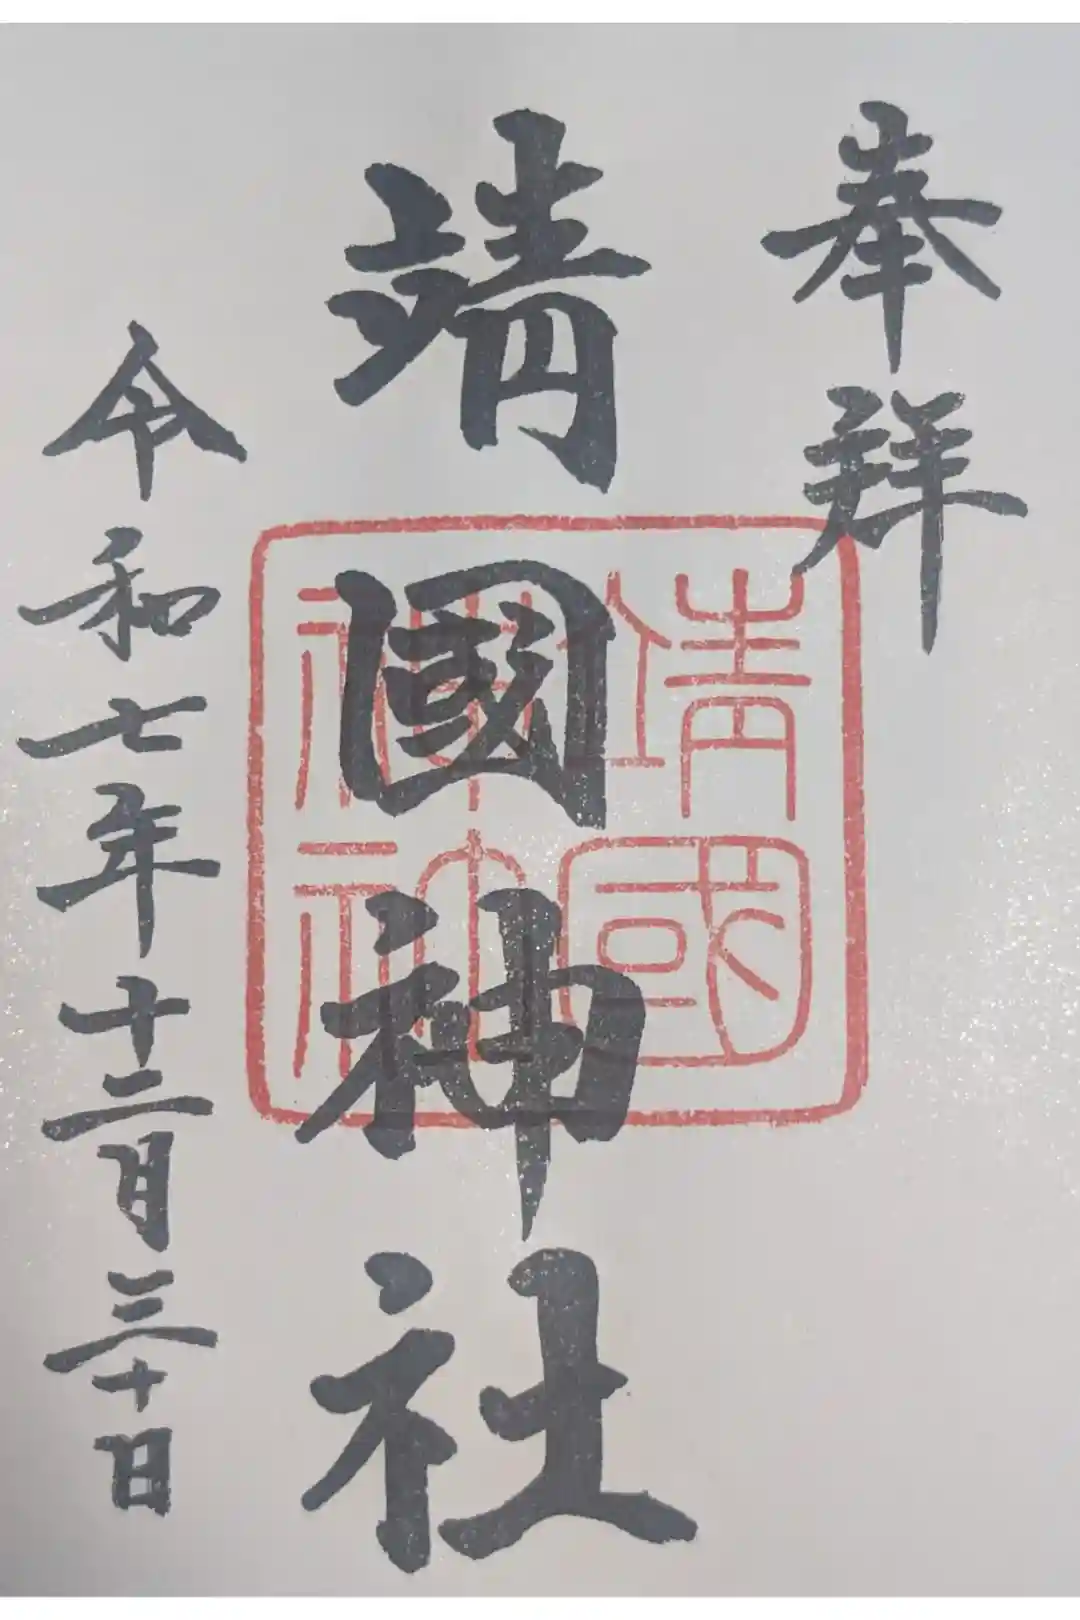 奉拜
靖國神社
靖國
神社
令和七年十二月三十日